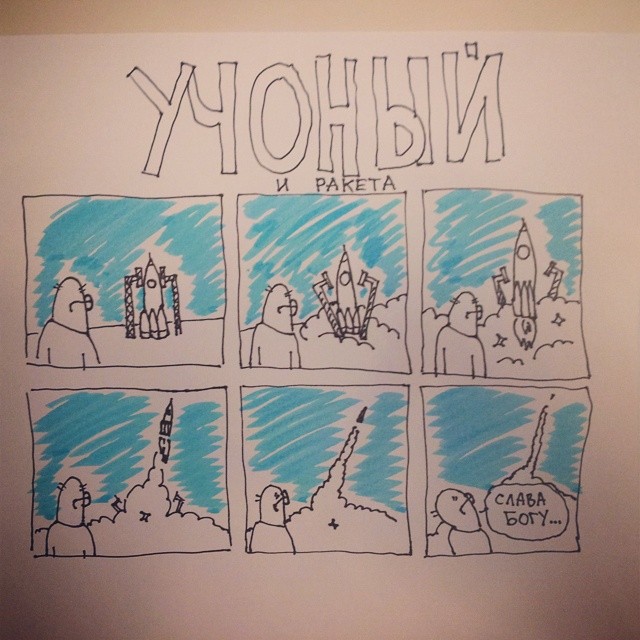 УЧОНЫЙ
И РАКЕТА
СЛАВА
БОГУ...